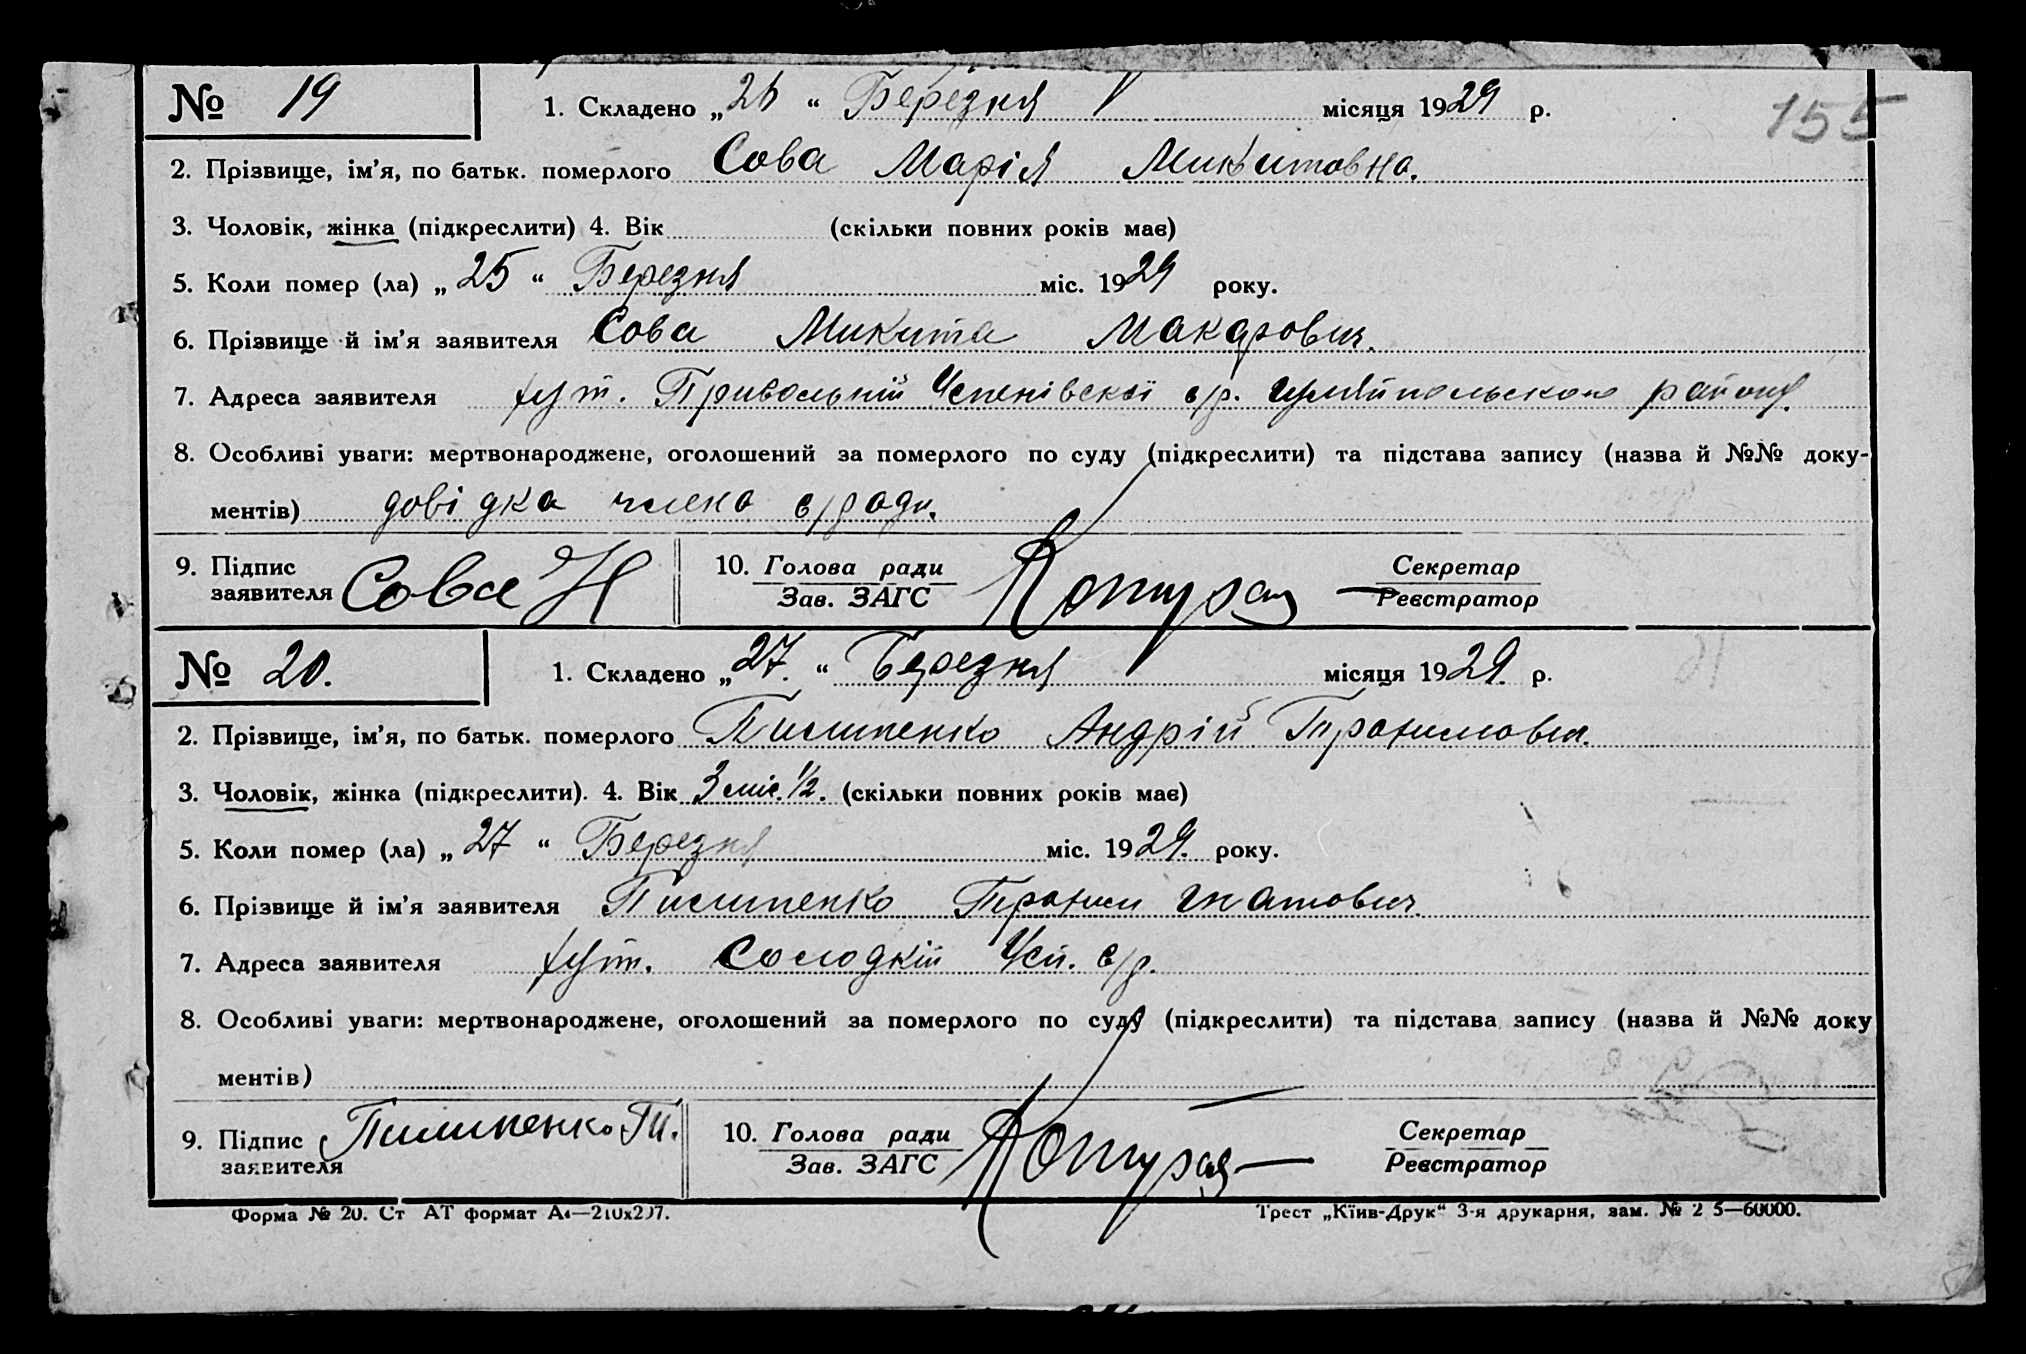 155
№ 19 1. Складено „26“ Березня місяця 1929 р.
2. Прізвище, ім'я, по батьк. померлого Сова Марія Микитовна.
3. Чоловік, жінка (підкреслити) 4. Вік (скільки повних років має)
5. Коли помер (ла) „25“ Березня міс. 1929 року.
6. Прізвище й ім'я заявителя Сова Микита Макарович.
7. Адреса заявителя хут. Привольній Успенівскої с/р. Гуляйпольского району.
8. Особливі уваги: мертвонароджене, оголошений за померлого по суду (підкреслити) та підстава запису (назва й №№ доку-
ментів) довідка члена с/ради.
9. Підпис заявителя Сова 10. Голова ради Секретар
Зав. ЗАГС Реєстратор
№ 20. 1. Складено „27.“ Березня місяця 1929. р.
2. Прізвище, ім'я, по батьк. померлого Пилипенко Андрій Трохимович.
3. Чоловік, жінка (підкреслити). 4. Вік 3 міс. 1/2. (скільки повних років має)
5. Коли помер (ла) „27“ Березня міс. 1929. року.
6. Прізвище й ім'я заявителя Пилипенко Трохим Гнатович.
7. Адреса заявителя хут. Солодкій Усп. с/р.
8. Особливі уваги: мертвонароджене, оголошений за померлого по суду (підкреслити) та підстава запису (назва й №№ доку
ментів)
9. Підпис заявителя Пилипенко 10. Голова ради Секретар
Зав. ЗАГС Реєстратор
Форма № 20. Ст АТ формат А4—210х297. Трест „Київ-Друк“ 3-я друкарня, зам. № 2 5—60000.